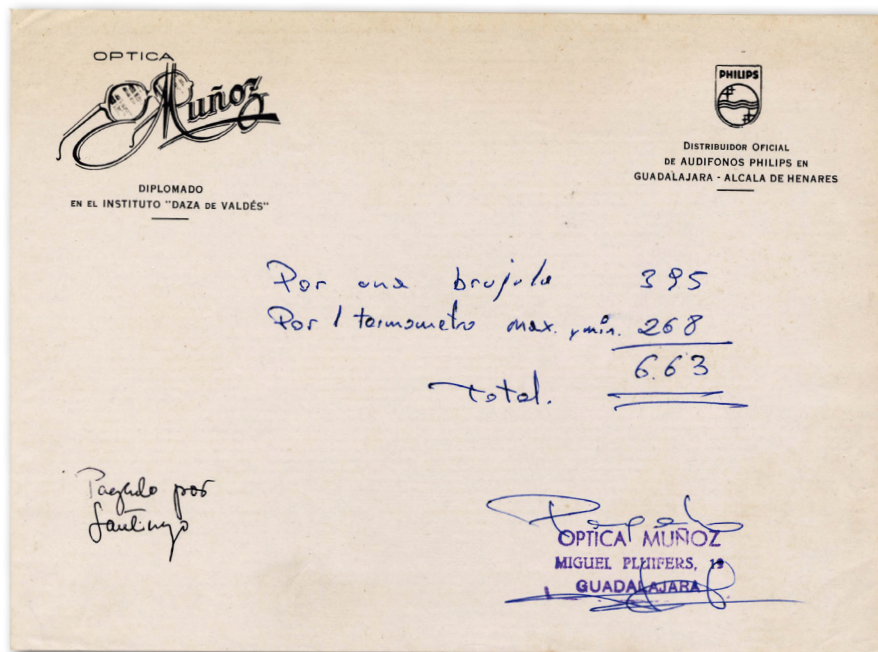 OPTICA
Muñoz
DIPLOMADO
EN EL INSTITUTO "DAZA DE VALDÉS"
PHILIPS
DISTRIBUIDOR OFICIAL
DE AUDIFONOS PHILIPS EN
GUADALAJARA - ALCALA DE HENARES
Por una brujula 395
Por 1 termometro max. y min. 268
6.63
Total.
Pagado por
Santiago
Pagado
OPTICA MUÑOZ
MIGUEL FLUITERS, 19
GUADALAJARA